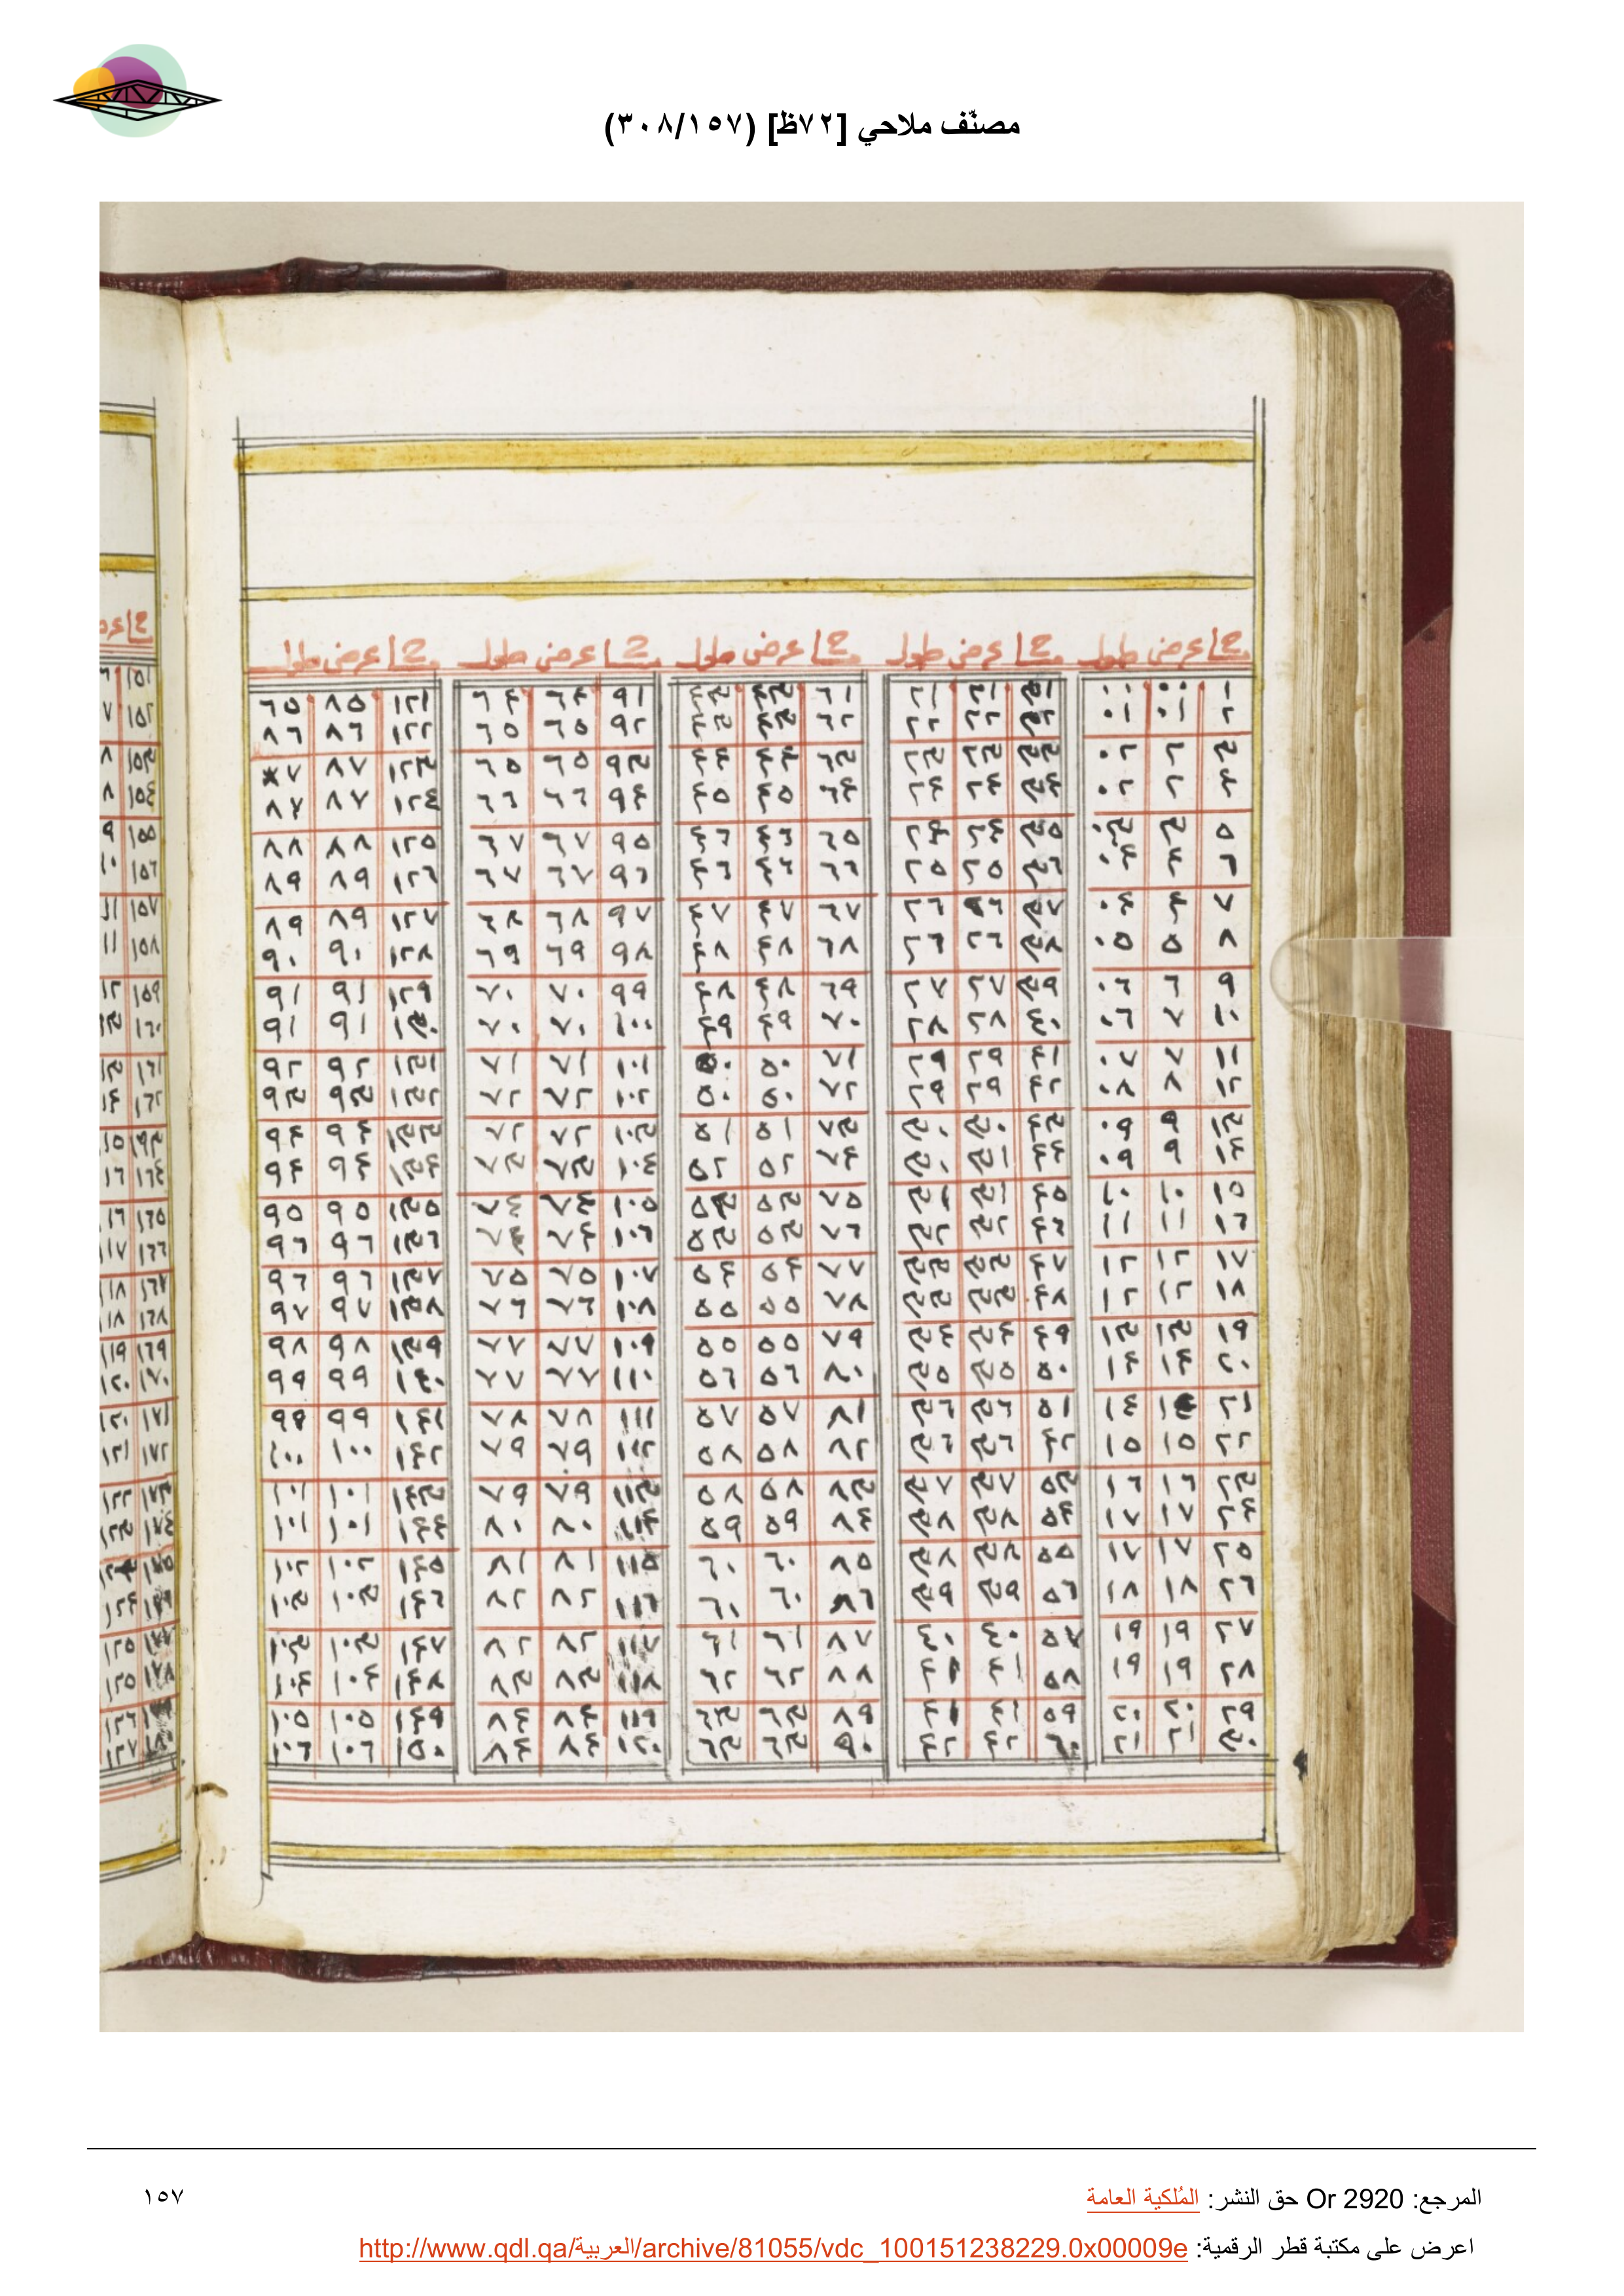 مصنّف ملاحي [٧٢ظ] (٣٠٨/١٥٧)
عرض طول عرض طول عرض طول عرض طول عرض طول
١ ٠٠ ٠١ ٣١ ٢١ ٢١ ٦١ ٤٣ ٤٣ ٩١ ٦٤ ٦٤ ١٢١ ٨٥ ٦٥
٢ ٠١ ٠١ ٣٢ ٢٢ ٢٢ ٦٢ ٤٣ ٤٣ ٩٢ ٦٥ ٦٥ ١٢٢ ٨٦ ٨٦
٣ ٢ ٠٢ ٣٣ ٢٣ ٢٣ ٦٣ ٤٤ ٤٤ ٩٣ ٦٥ ٦٥ ١٢٣ ٨٧ ٨٧
٤ ٢ ٠٢ ٣٤ ٢٤ ٢٤ ٦٤ ٤٥ ٤٥ ٩٤ ٦٦ ٦٦ ١٢٤ ٨٧ ٨٧
٥ ٣ ٠٣ ٣٥ ٢٤ ٢٤ ٦٥ ٤٦ ٤٦ ٩٥ ٦٧ ٦٧ ١٢٥ ٨٨ ٨٨
٦ ٤ ٠٤ ٣٦ ٢٥ ٢٥ ٦٦ ٤٦ ٤٦ ٩٦ ٦٧ ٦٧ ١٢٦ ٨٩ ٨٩
٧ ٤ ٠٤ ٣٧ ٢٦ ٢٦ ٦٧ ٤٧ ٤٧ ٩٧ ٦٨ ٦٨ ١٢٧ ٨٩ ٨٩
٨ ٥ ٠٥ ٣٨ ٢٦ ٢٦ ٦٨ ٤٨ ٤٨ ٩٨ ٦٩ ٦٩ ١٢٨ ٩٠ ٩٠
٩ ٦ ٠٦ ٣٩ ٢٧ ٢٧ ٦٩ ٤٨ ٤٨ ٩٩ ٧٠ ٧٠ ١٢٩ ٩١ ٩١
١٠ ٧ ٠٦ ٤٠ ٢٨ ٢٨ ٧٠ ٤٩ ٤٩ ١٠٠ ٧٠ ٧٠ ١٣٠ ٩١ ٩١
١١ ٧ ٠٧ ٤١ ٢٩ ٢٩ ٧١ ٥٠ ٥٠ ١٠١ ٧١ ٧١ ١٣١ ٩٢ ٩٢
١٢ ٨ ٠٨ ٤٢ ٢٩ ٢٩ ٧٢ ٥٠ ٥٠ ١٠٢ ٧٢ ٧٢ ١٣٢ ٩٣ ٩٣
١٣ ٩ ٠٩ ٤٣ ٣٠ ٣٠ ٧٣ ٥١ ٥١ ١٠٣ ٧٢ ٧٢ ١٣٣ ٩٤ ٩٤
١٤ ٩ ٠٩ ٤٤ ٣١ ٣٠ ٧٤ ٥٢ ٥٢ ١٠٤ ٧٣ ٧٣ ١٣٤ ٩٤ ٩٤
١٥ ١٠ ١٠ ٤٥ ٣١ ٣١ ٧٥ ٥٣ ٥٣ ١٠٥ ٧٤ ٧٤ ١٣٥ ٩٥ ٩٥
١٦ ١١ ١١ ٤٦ ٣٢ ٣٢ ٧٦ ٥٣ ٥٣ ١٠٦ ٧٤ ٧٤ ١٣٦ ٩٦ ٩٦
١٧ ١٢ ١٢ ٤٧ ٣٣ ٣٣ ٧٧ ٥٤ ٥٤ ١٠٧ ٧٥ ٧٥ ١٣٧ ٩٦ ٩٦
١٨ ١٢ ١٢ ٤٨ ٣٣ ٣٣ ٧٨ ٥٥ ٥٥ ١٠٨ ٧٦ ٧٦ ١٣٨ ٩٧ ٩٧
١٩ ١٣ ١٣ ٤٩ ٣٤ ٣٤ ٧٩ ٥٥ ٥٥ ١٠٩ ٧٧ ٧٧ ١٣٩ ٩٨ ٩٨
٢٠ ١٤ ١٤ ٥٠ ٣٥ ٣٥ ٨٠ ٥٦ ٥٦ ١١٠ ٧٧ ٧٧ ١٤٠ ٩٩ ٩٩
٢١ ١٤ ١٤ ٥١ ٣٦ ٣٦ ٨١ ٥٧ ٥٧ ١١١ ٧٨ ٧٨ ١٤١ ٩٩ ٩٩
٢٢ ١٥ ١٥ ٤٢ ٣٦ ٣٦ ٨٢ ٥٨ ٥٨ ١١٢ ٧٩ ٧٩ ١٤٢ ١٠٠ ١٠٠
٢٣ ١٦ ١٦ ٥٣ ٣٧ ٣٧ ٨٣ ٥٨ ٥٨ ١١٣ ٧٩ ٧٩ ١٤٣ ١٠١ ١٠١
٢٤ ١٧ ١٧ ٥٤ ٣٨ ٣٨ ٨٤ ٥٩ ٥٩ ١١٤ ٨٠ ٨٠ ١٤٤ ١٠١ ١٠١
٢٥ ١٧ ١٧ ٥٥ ٣٨ ٣٨ ٨٥ ٦٠ ٦٠ ١١٥ ٨١ ٨١ ١٤٥ ١٠٢ ١٠٢
٢٦ ١٨ ١٨ ٥٦ ٣٩ ٣٩ ٨٦ ٦٠ ٦٠ ١١٦ ٨٢ ٨٢ ١٤٦ ١٠٣ ١٠٣
٢٧ ١٩ ١٩ ٥٧ ٤٠ ٤٠ ٨٧ ٦١ ٦١ ١١٧ ٨٢ ٨٢ ١٤٧ ١٠٣ ١٠٣
٢٨ ١٩ ١٩ ٥٨ ٤١ ٤١ ٨٨ ٦٢ ٦٢ ١١٨ ٨٣ ٨٣ ١٤٨ ١٠٤ ١٠٤
٢٩ ٢٠ ٢٠ ٥٩ ٤١ ٤١ ٨٩ ٦٣ ٦٣ ١١٩ ٨٤ ٨٤ ١٤٩ ١٠٥ ١٠٥
٣٠ ٢١ ٢١ ٦٠ ٤٢ ٤٢ ٩٠ ٦٣ ٦٣ ١٢٠ ٨٤ ٨٤ ١٥٠ ١٠٦ ١٠٦
المرجع: Or 2920 حق النشر: المُلكية العامة
١٥٧
اعرض على مكتبة قطر الرقمية: http://www.qdl.qa/العربية/archive/81055/vdc_100151238229.0x00009e